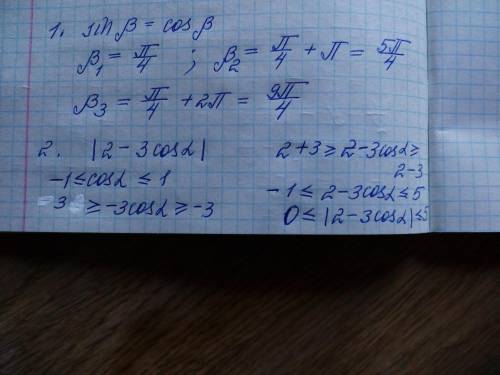 1. sin β = cos β
β₁ = π/4 ; β₂ = π/4 + π = 5π/4
β₃ = π/4 + 2π = 9π/4
2. |2 - 3cosα|
-1 ≤ cosα ≤ 1
3 ≥ -3cosα ≥ -3
2+3 ≥ 2-3cosα ≥
2-3
-1 ≤ 2-3cosα ≤ 5
0 ≤ |2-3cosα| ≤ 5